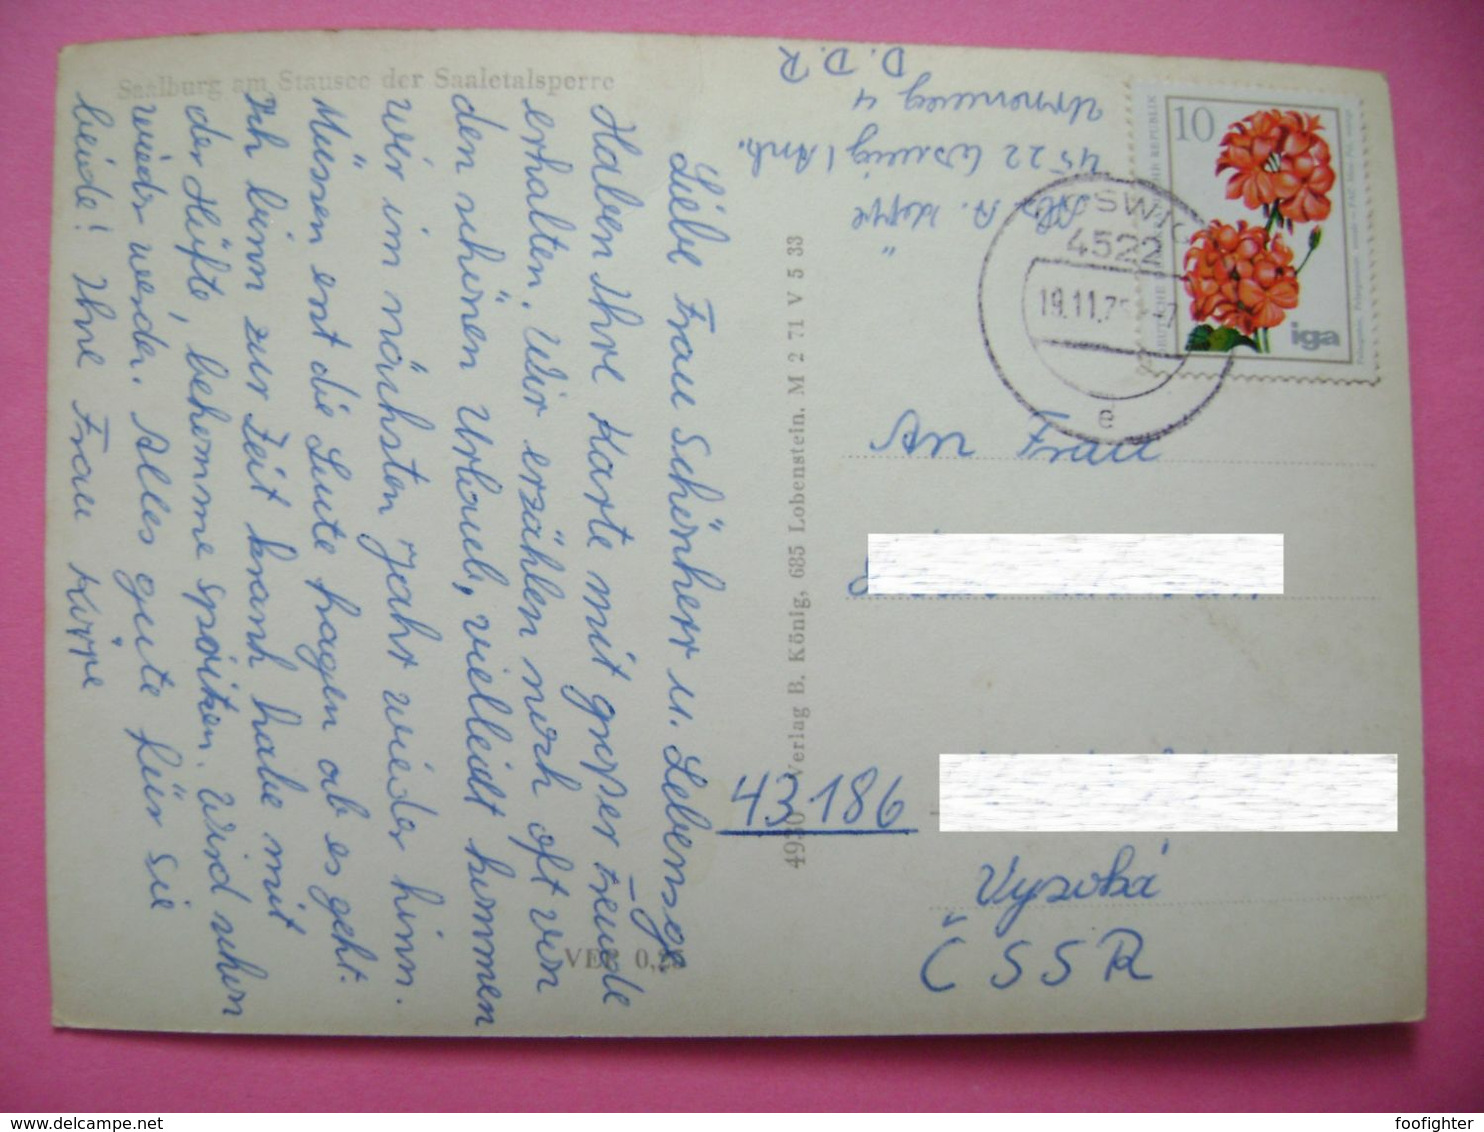 Saalburg am Stausee der Saaletalsperre
Liebe Frau Schönherr u. Lebensg.
Haben Ihre Karte mit großer Freude
erhalten. Wir erzählen noch oft von
den schönen Urlaub, vielleidt kommen
wir im nächsten Jahr wieder hinn.
Müssen erst die Leute fragen ob es geht.
Ich binn zur Zeit krank habe mit
der Hüfte, bekomme spritzen. Wird schon
wieder werden. Alles gute für Sie
beide! Ihre Frau Küppe
VEB 0,25
4980 Verlag B. König, 685 Lobenstein. M 2 71 V 5 33
4522
D. D. R
COSWIG
4522
19.11.75
a
10
iga
An Frau
43186
Vysoká
ČSSR
www.delcampe.net
foofighter